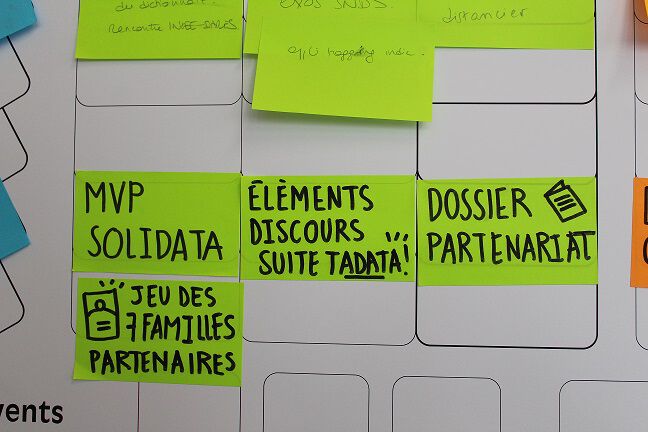 du dictionnaire.
Rencontre INSEE-DARES
exos SNDS.
distancier
mapping indic.
MVP
SOLIDATA
ÉLÉMENTS
DISCOURS
SUITE TADATA!
DOSSIER
PARTENARIAT
JEU DES
7 FAMILLES
PARTENAIRES
vents